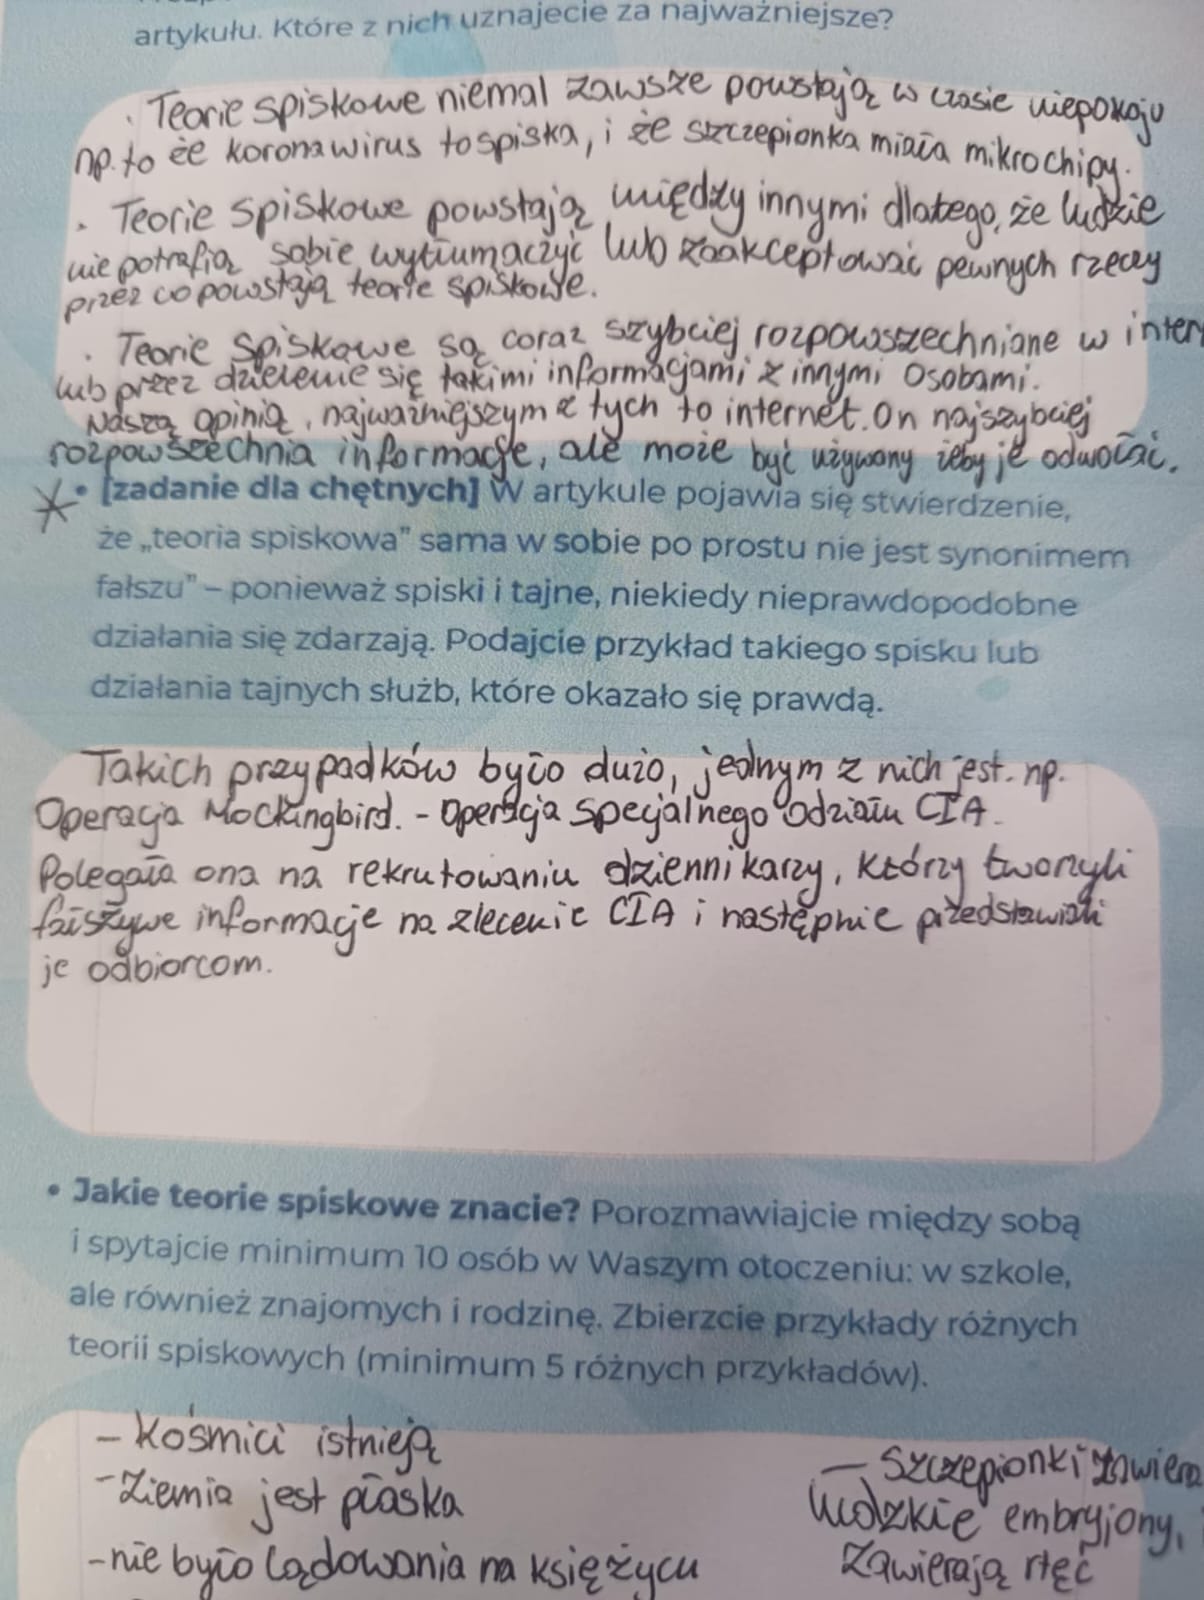 artykułu. Które z nich uznajecie za najważniejsze?
. Teorie spiskowe niemal zawsze powstają w czasie niepokoju
np. to że koronawirus to spiska, i że szczepionka miała mikrochipy.
. Teorie spiskowe powstają między innymi dlatego, że ludzie
nie potrafią sobie wytłumaczyć lub zaakceptować pewnych rzeczy
przez co powstają teorie spiskowe.
. Teorie spiskowe są coraz szybciej rozpowszechniane w inter
lub przez dzielenie się takimi informacjami z innymi osobami.
Naszą opinią, najważniejszym z tych to internet. On najszybciej
rozpowszechnia informacje, ale może być używany żeby je odwołać.
• [zadanie dla chętnych] W artykule pojawia się stwierdzenie,
że „teoria spiskowa” sama w sobie po prostu nie jest synonimem
fałszu” – ponieważ spiski i tajne, niekiedy nieprawdopodobne
działania się zdarzają. Podajcie przykład takiego spisku lub
działania tajnych służb, które okazało się prawdą.
Takich przypadków było dużo, jednym z nich jest. np.
Operacja Mockingbird. - Operacja specjalnego odziału CIA.
Polegała ona na rekrutowaniu dziennikarzy, którzy tworzyli
fałszywe informacje na zlecenie CIA i następnie przedstawiali
je odbiorcom.
• Jakie teorie spiskowe znacie? Porozmawiajcie między sobą
i spytajcie minimum 10 osób w Waszym otoczeniu: w szkole,
ale również znajomych i rodzinę. Zbierzcie przykłady różnych
teorii spiskowych (minimum 5 różnych przykładów).
- Kosmici istnieją
- Ziemia jest płaska
- nie było lądowania na księżycu
- Szczepionki zawiera
ludzkie embryjony,
zawierają rtęć